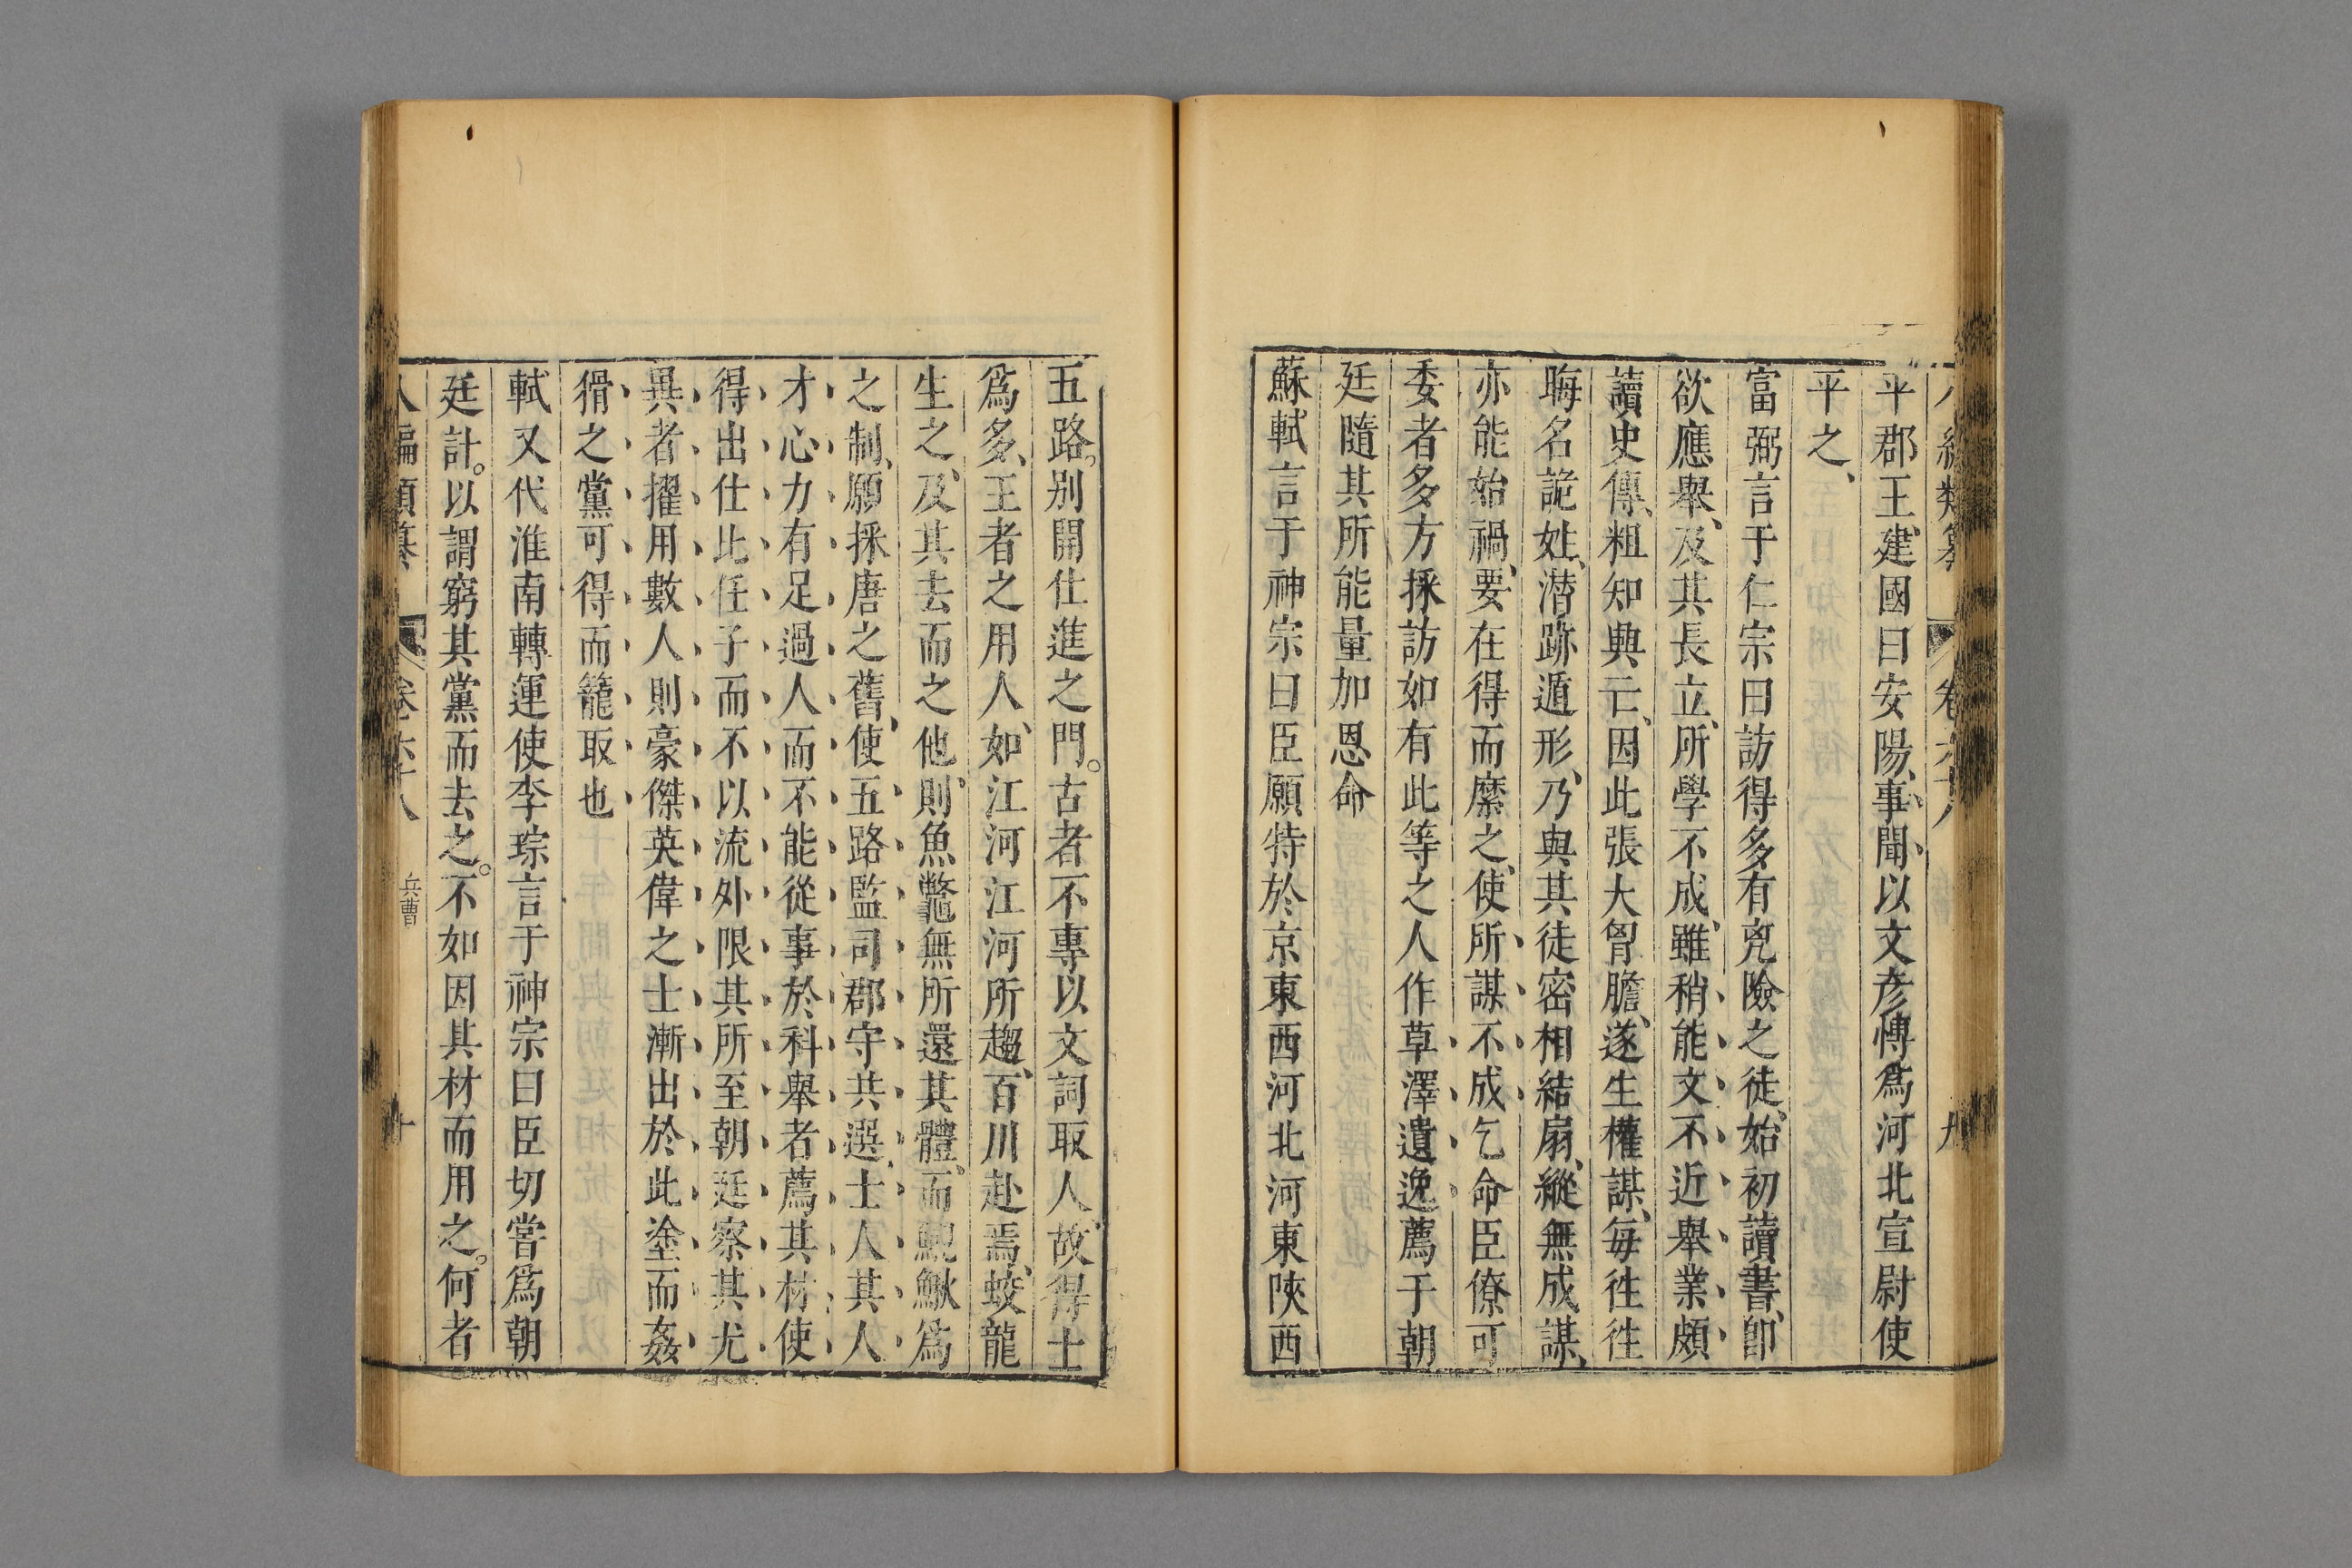 平郡王建國曰安陽事聞以文彦博爲河北宣尉使
平之
富弼言于仁宗曰訪得多有兇險之徒始初讀書即
欲應舉及其長立所學不成雖稍能文不近舉業頗
讀史傳粗知興亡因此張大胷膽遂生權謀每徃徃
晦名詭姓潜跡遁形乃與其徒密相結扇縱無成謀
亦能始禍要在得而縻之使所謀不成乞命臣僚可
委者多方採訪如有此等之人作草澤遺逸薦于朝
廷隨其所能量加恩命
蘇軾言于神宗曰臣願特於京東西河北河東陝西
五路別開仕進之門古者不專以文詞取人故得士
爲多王者之用人如江河江河所趨百川赴焉蛟龍
生之及其去而之他則魚鼈無所還其體而鯢鰍爲
之制願採唐之舊使五路監司郡守共選士人其人
才心力有足過人而不能從事於科舉者薦其材使
得出仕比任子而不以流外限其所至朝廷察其尤
異者擢用數人則豪傑英偉之士漸出於此塗而姦
猾之黨可得而籠取也
軾又代淮南轉運使李琮言于神宗曰臣切嘗爲朝
廷計以謂窮其黨而去之不如因其材而用之何者
八編類纂 卷六十八 兵曹 十